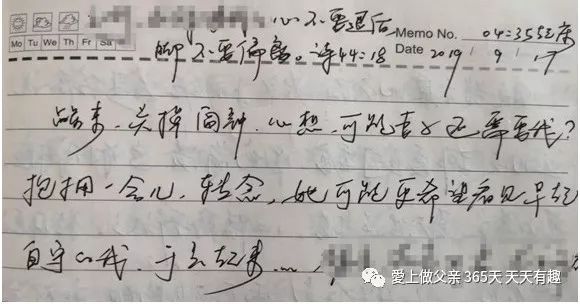 心不要退后
Memo No. 04:35起床
Mo Tu We Th Fr Sa
脚不要偏离。诗44:18
Date 2019 / 9 / 17
醒来,关掉闹钟,心想,可能妻子还需要我?
抱拥一会儿,转念,她可能更希望看见早起
自守的我,于是起来…
愛上做父亲 365天 天天有趣